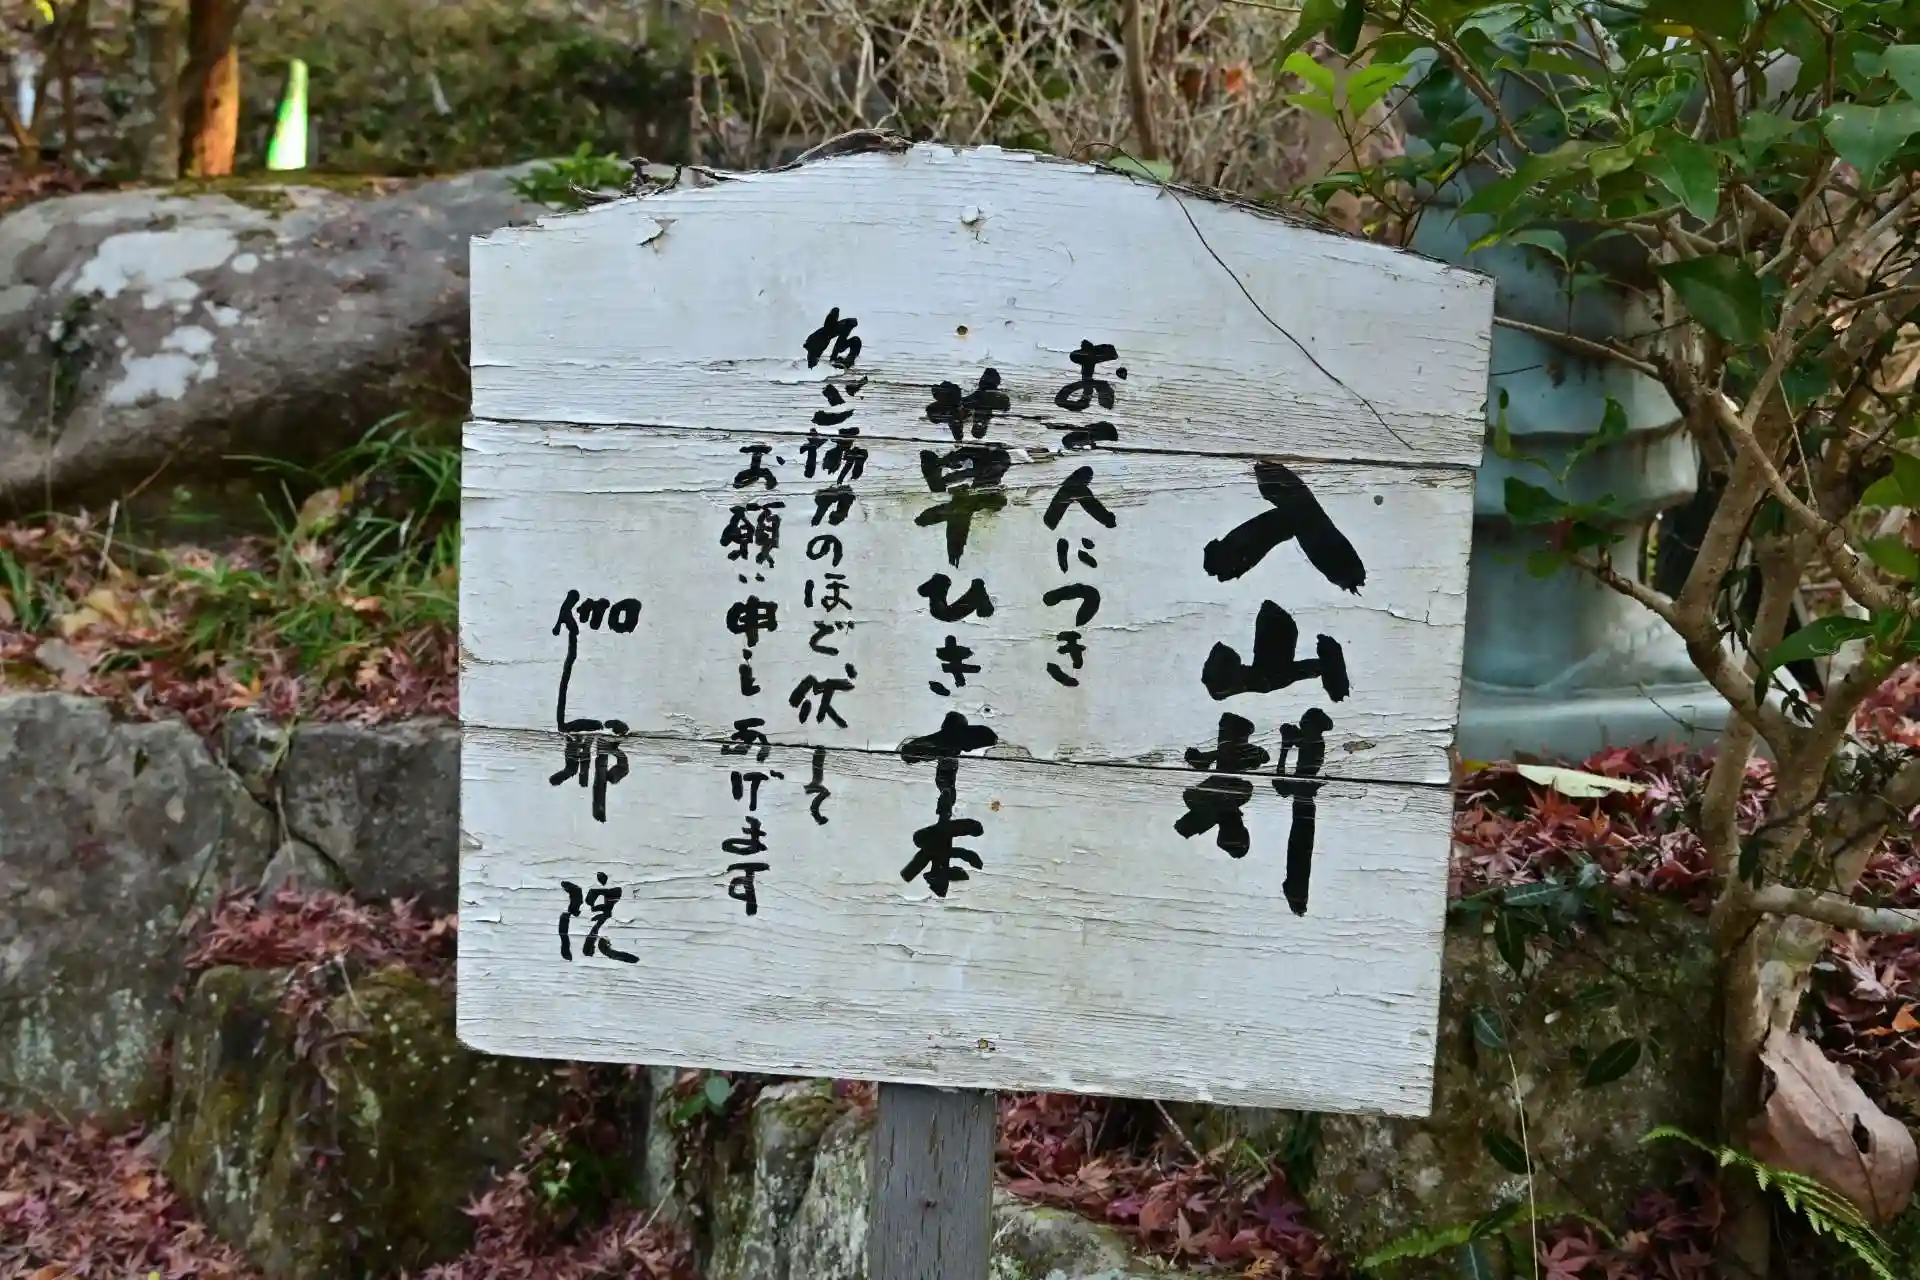 入山料
お一人につき
草ひき十本
右ご協力のほど、伏して
お願い申しあげます
伽耶院